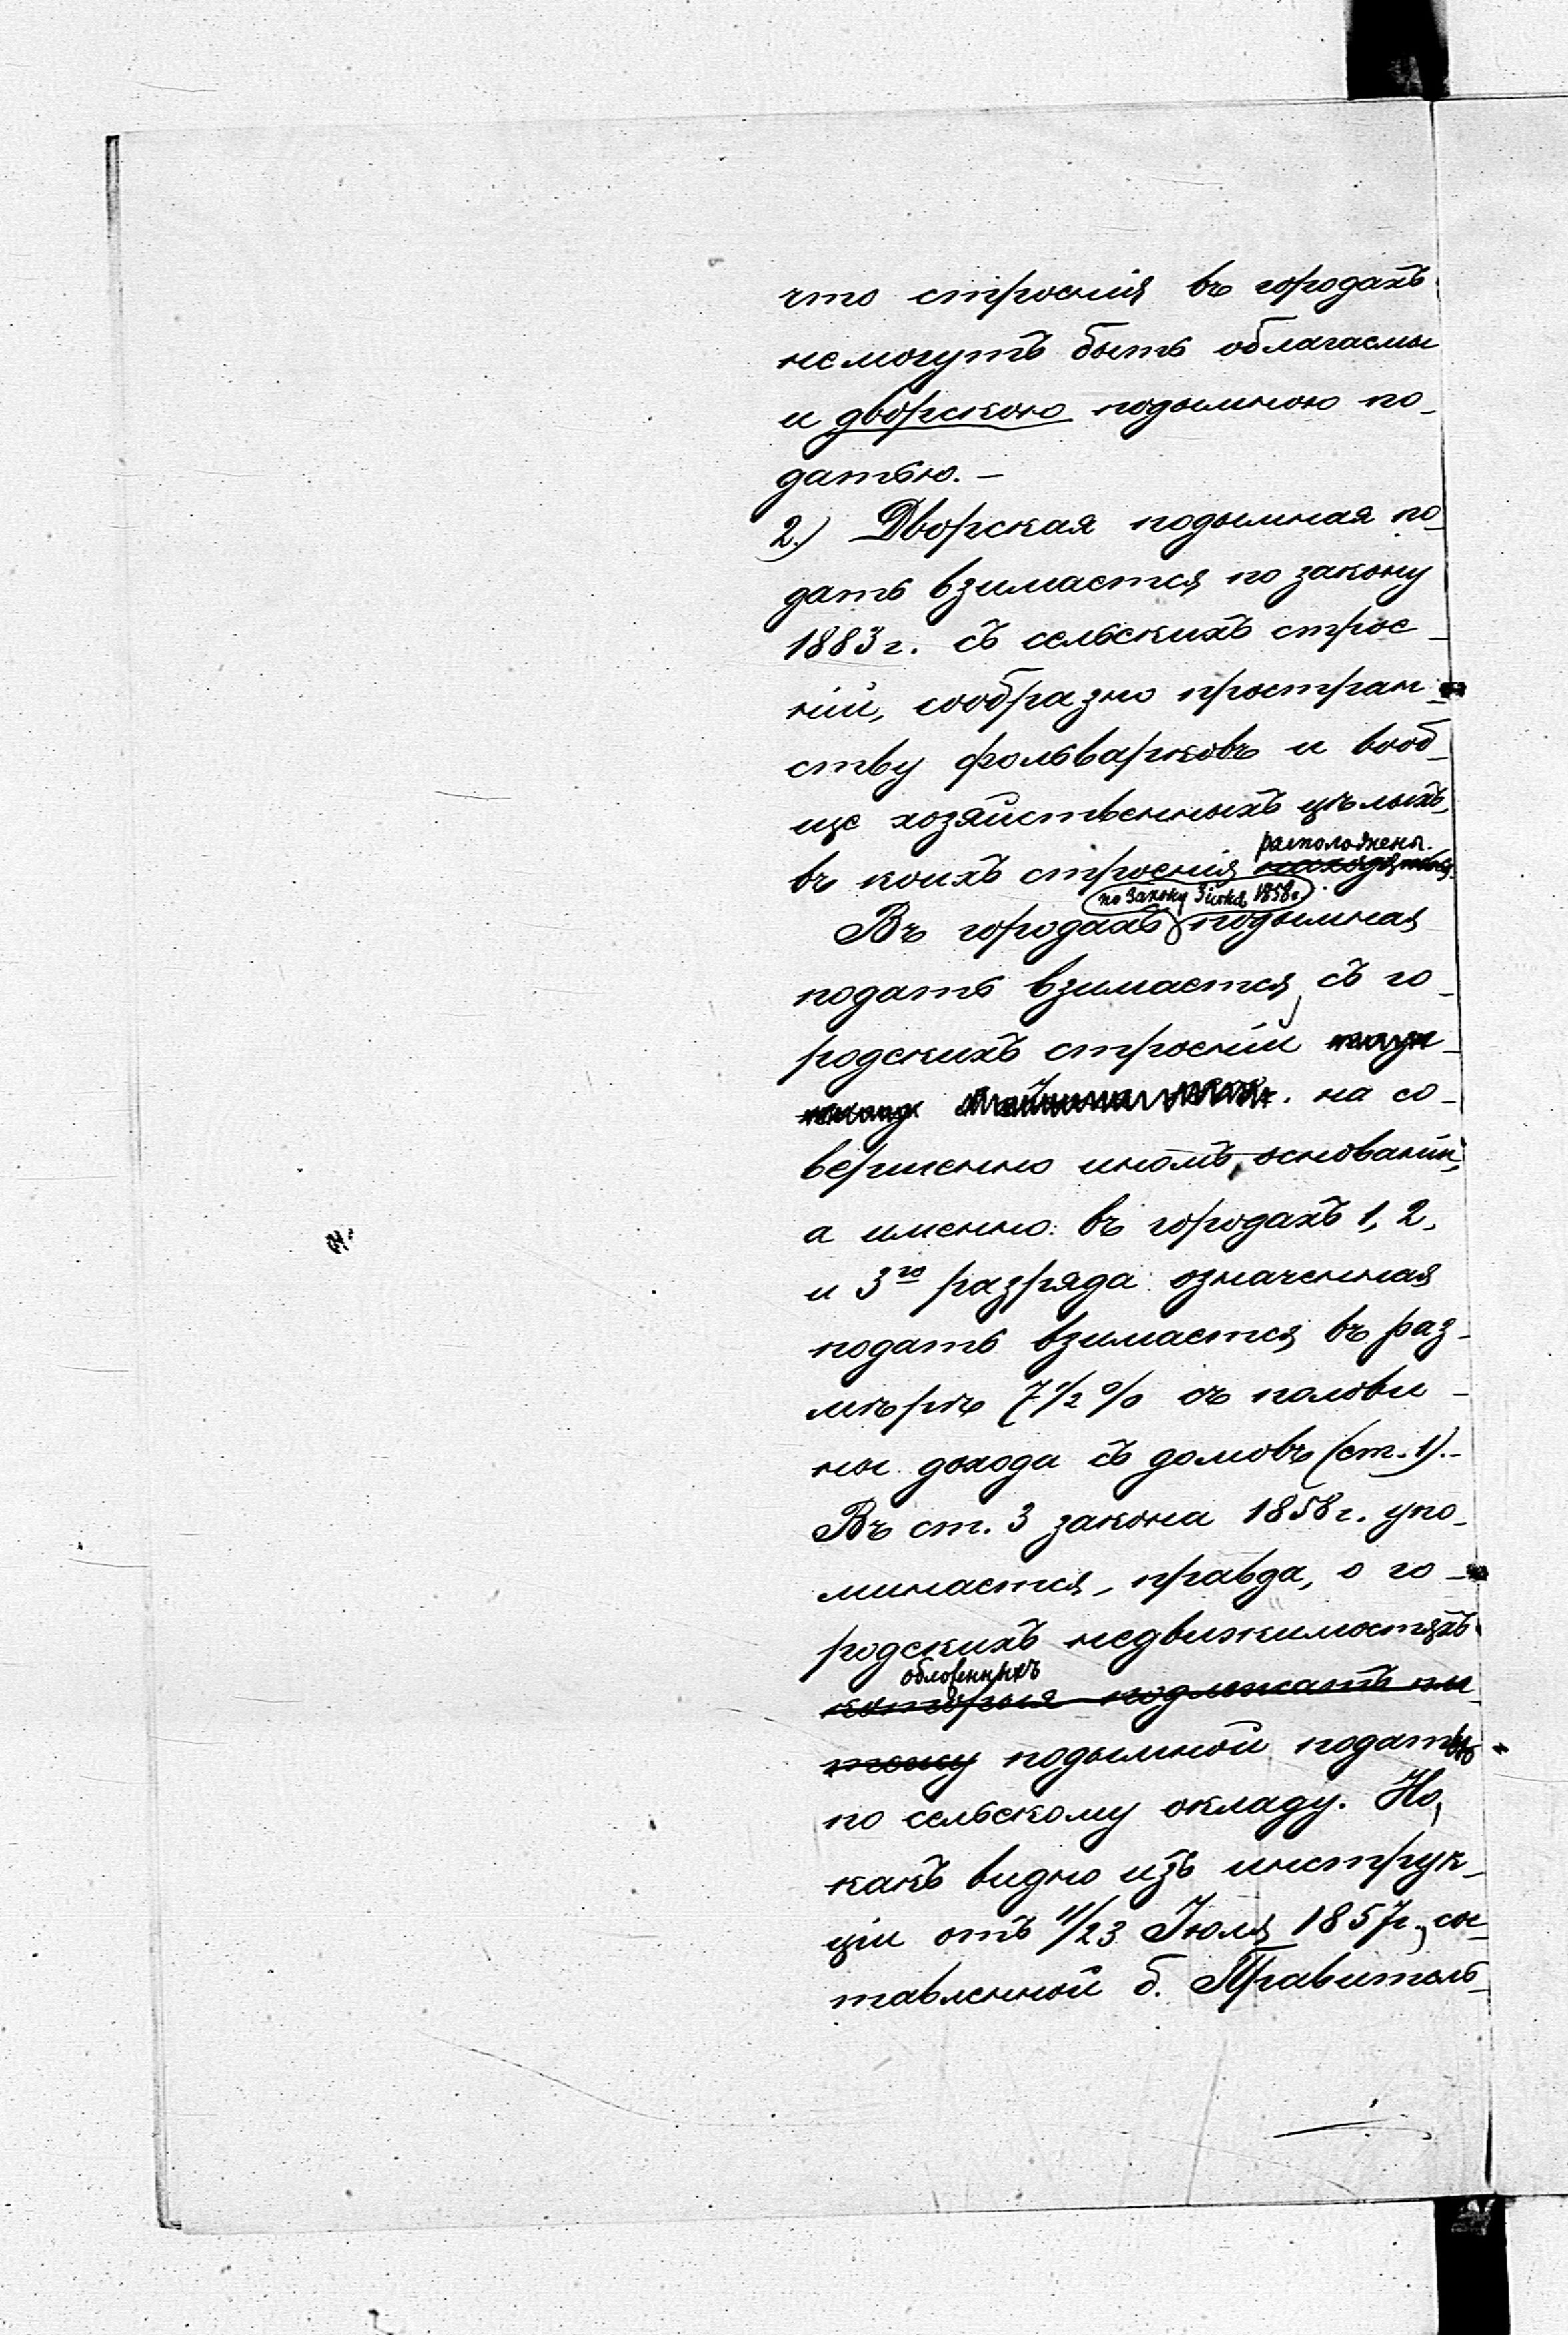 что строенія въ городахъ
немогутъ быть облагаемы
и дворскою подымною по-
датью. —
2.) Дворская подымная по-
дать взимается по закону
1883 г. съ сельскихъ строе-
ній, сообразно простран-
ству фольварковъ и вооб-
ще хозяйственныхъ цѣлыхъ,
расположены.
въ коихъ строенія находятся.
по закону 3 іюня 1858 г.
Въ городахъ подымная
подать взимается, съ го-
родскихъ строеній
на со-
вершенно иномъ, основаніи,
а именно: въ городахъ 1, 2,
и 3го разряда означенная
подать взимается въ раз-
мѣрѣ 7 1/2 % съ полови-
ны дохода съ домовъ (ст. 1).-
Въ ст. 3 закона 1858 г. упо-
минается, правда, о го-
родскихъ недвижимостяхъ
обложенныхъ
которыя подлежатъ пла
тежу подымной податью
по сельскому окладу. Но,
какъ видно изъ инструк-
ціи отъ 11/23 Іюля 1857 г., сос-
тавленной б. Правитель-